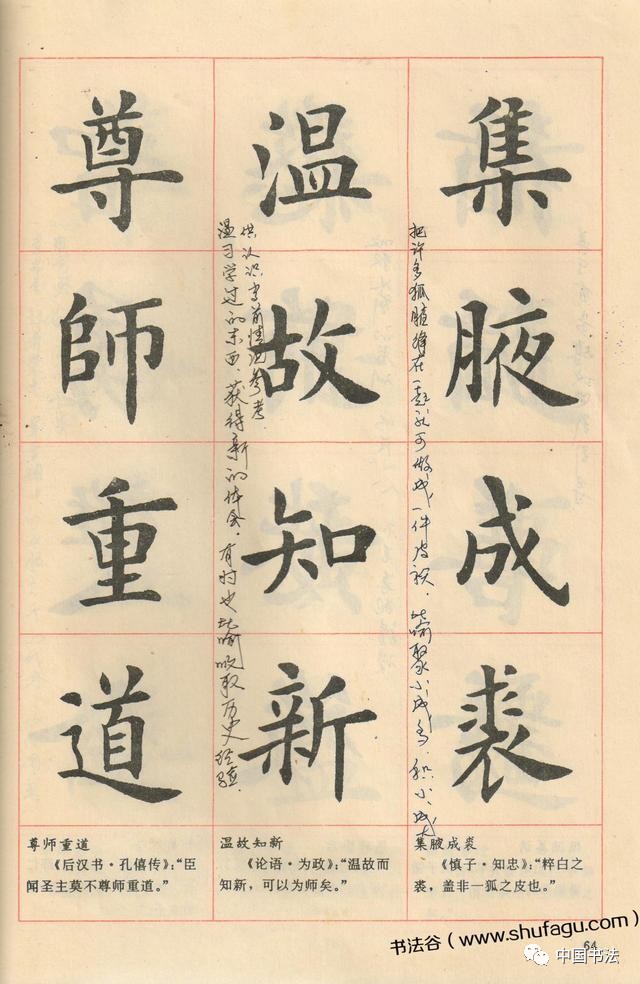 集腋成裘
把许多狐腋缝在一起就可做成一件皮袄．比喻聚小成多．积小成大
温故知新
温习学过的东西．获得新的体会．有时也比喻吸取历史经验．
供认识当前情况参考．
尊師重道
尊师重道
《后汉书·孔僖传》：“臣
闻圣主莫不尊师重道。”
温故知新
《论语·为政》：“温故而
知新，可以为师矣。”
集腋成裘
《慎子·知忠》：“粹白之
裘，盖非一狐之皮也。”
64
书法谷（www.shufagu.com）
中国书法